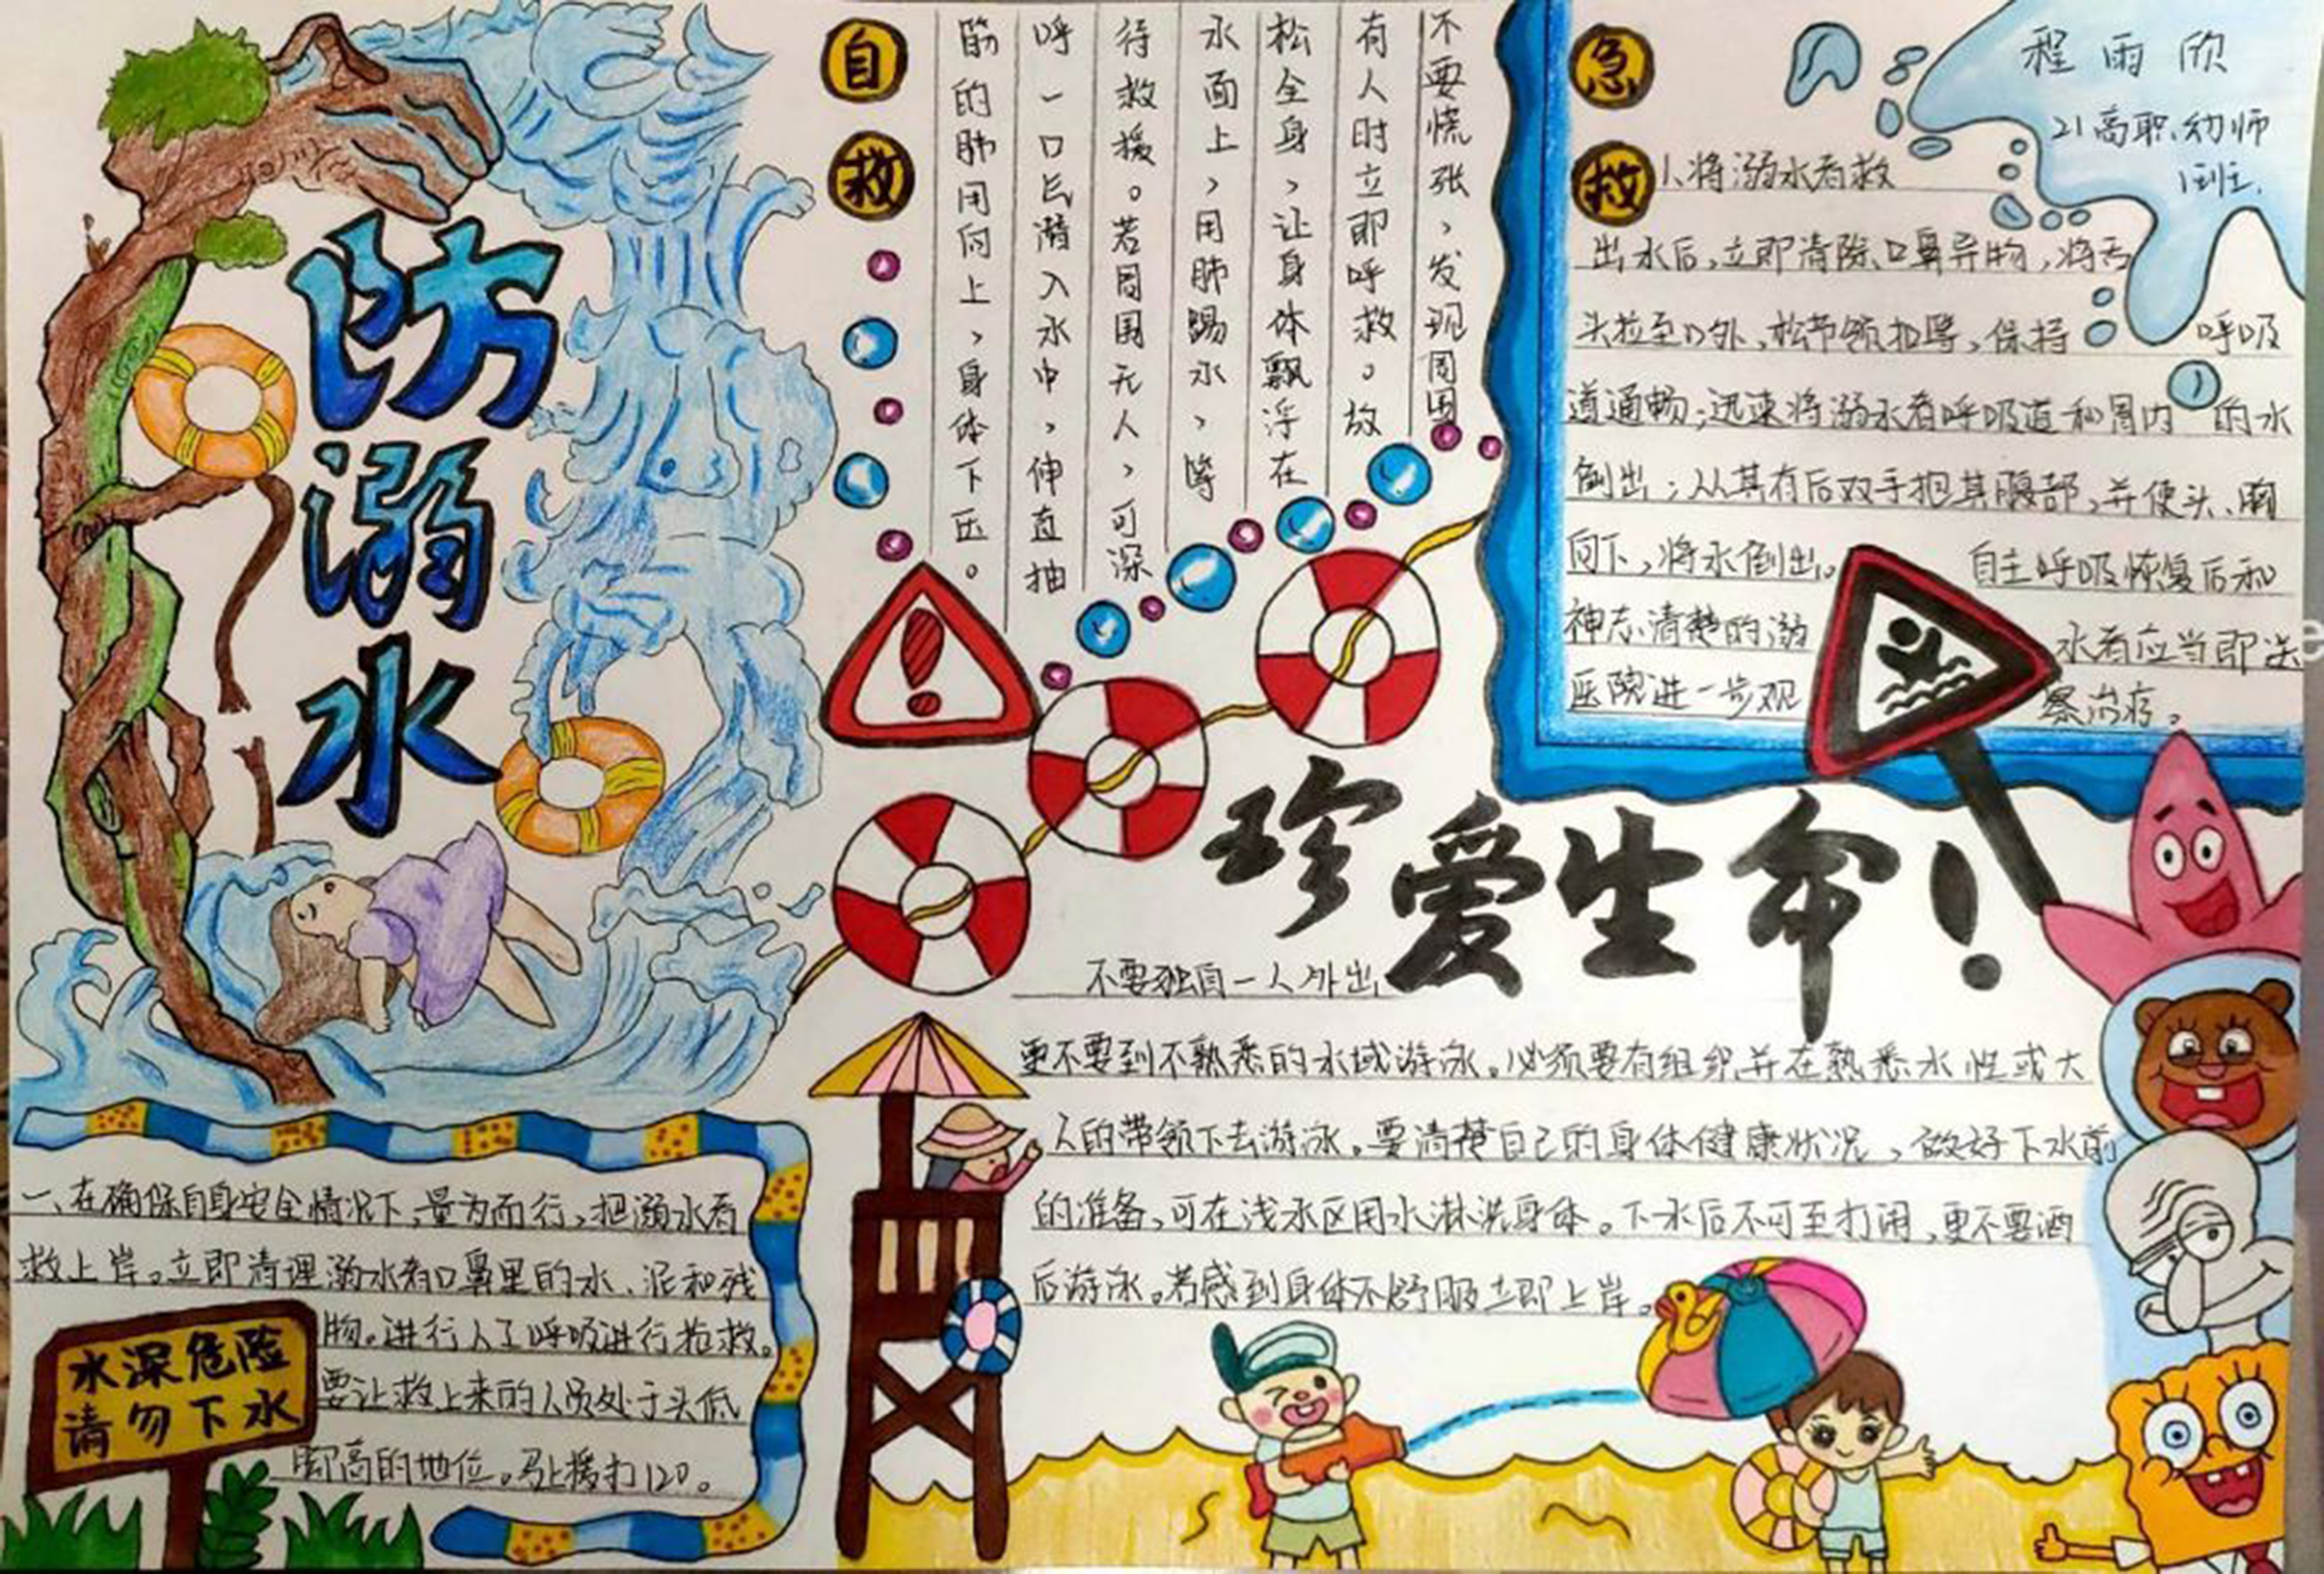 防溺水
自救
不要慌张,发现周围
有人时立即呼救。放
松全身,让身体飘浮在
水面上,用脚踢水,等
待救援。若周围无人,可深
呼一口气潜入水中,伸直抽
筋的脚用向上,身体下压。
急救
程雨欣
21高职幼师
1班
1、将溺水者救
出水后,立即清除口鼻异物,将舌
头拉至口外,松节领扣等,保持呼吸
道通畅;迅速将溺水者呼吸道和胃内的水
倒出;从其有后双手抱其腹部,并使头、胸
向下,将水倒出。自主呼吸恢复后和
神志清楚的溺水者应当即送
医院进一步观察治疗。
珍爱生命!
不要独自一人外出
更不要到不熟悉的水域游泳。必须要有组织并在熟悉水性或大
人的带领下去游泳。要清楚自己的身体健康状况,做好下水前
的准备,可在浅水区用水淋洗身体。下水后不可至打闹,更不要酒
后游泳。若感到身体不舒服立即上岸。
一、在确保自身安全情况下,量力而行,把溺水者
救上岸。立即清理溺水者口鼻里的水、泥和残
物。进行人工呼吸进行抢救。
要让救上来的人员处于头低
脚高的地位。马上拨打120。
水深危险
请勿下水